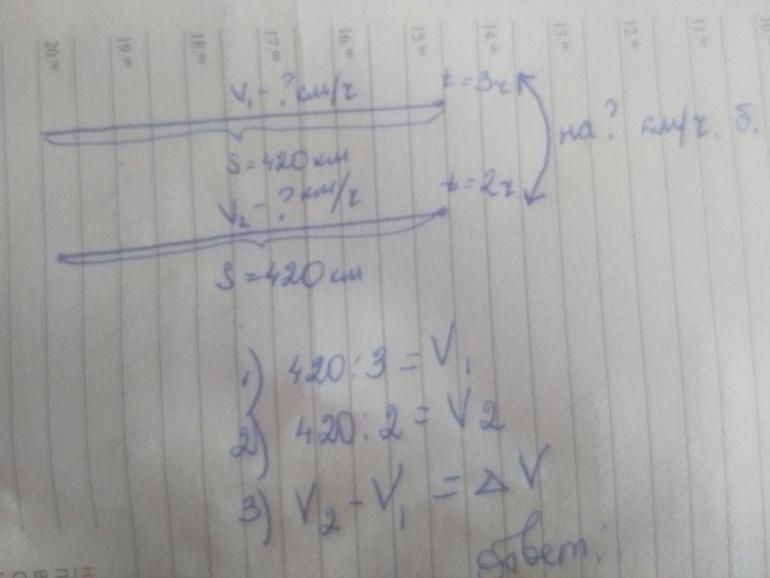 20.00 19.00 18.00 17.00 16.00 15.00 14.00 13.00 12.00 11.00 10.
V₁ - ? км/ч
t = 3ч
S = 420 км
на ? км/ч. б.
V₂ - ? км/ч
t = 2ч
S = 420 см
1) 420 : 3 = V₁
2) 420 : 2 = V2
3) V₂ - V₁ = ΔV
ответ: